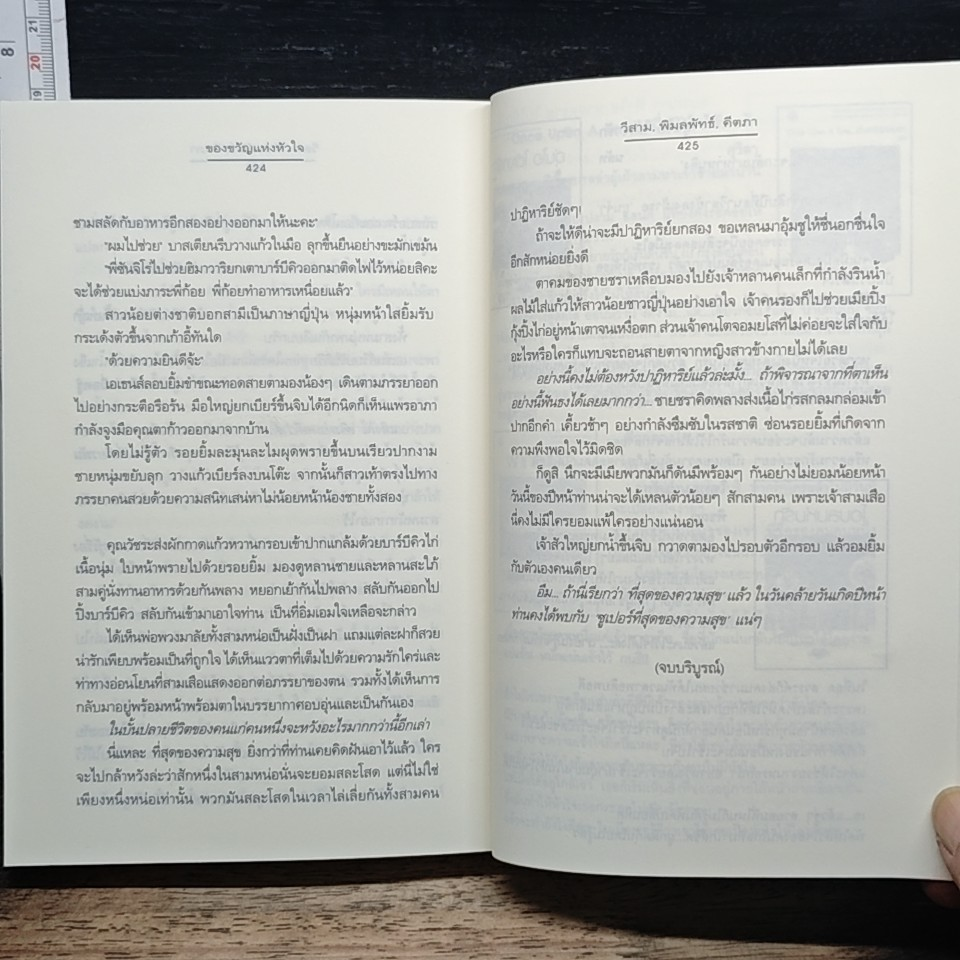 8
21
20
19
ของขวัญแห่งหัวใจ
424
ชามสลัดกับอาหารอีกสองอย่างออกมาให้นะคะ"
"ผมไปช่วย" บาสเตียนรีบวางแก้วในมือ ลุกขึ้นยืนอย่างขะมักเขม้น
"พี่ซันจิโร่ไปช่วยฮิมาวาริยกเตาบาร์บีคิวออกมาติดไฟไว้หน่อยสิคะ
จะได้ช่วยแบ่งภาระพี่ก้อย พี่ก้อยทำอาหารเหนื่อยแล้ว"
สาวน้อยต่างชาติบอกสามีเป็นภาษาญี่ปุ่น หนุ่มหน้าใสยิ้มรับ
กระเด้งตัวขึ้นจากเก้าอี้ทันใด
"ด้วยความยินดีจ้ะ"
เอเธนส์ลอบยิ้มขำขณะทอดสายตามองน้องๆ เดินตามภรรยาออก
ไปอย่างกระตือรือร้น มือใหญ่ยกเบียร์ขึ้นจิบได้อีกนิดก็เห็นแพรอาภา
กำลังจูงมือคุณตาก้าวออกมาจากบ้าน
โดยไม่รู้ตัว รอยยิ้มละมุนละไมผุดพรายขึ้นบนเรียวปากงาม
ชายหนุ่มขยับลุก วางแก้วเบียร์ลงบนโต๊ะ จากนั้นก็สาวเท้าตรงไปทาง
ภรรยาคนสวยด้วยความสนิทเสน่หาไม่น้อยหน้าน้องชายทั้งสอง
คุณวัชระส่งผักกาดแก้วหวานกรอบเข้าปากแกล้มด้วยบาร์บีคิวไก่
เนื้อนุ่ม ใบหน้าพรายไปด้วยรอยยิ้ม มองดูหลานชายและหลานสะใภ้
สามคู่นั่งทานอาหารด้วยกันพลาง หยอกเย้ากันไปพลาง สลับกันออกไป
ปิ้งบาร์บีคิว สลับกันเข้ามาเอาใจท่าน เป็นที่อิ่มเอมใจเหลือจะกล่าว
ได้เห็นพ่อพวงมาลัยทั้งสามหน่อเป็นฝั่งเป็นฝา แถมแต่ละฝาก็สวย
น่ารักเพียบพร้อมเป็นที่ถูกใจ ได้เห็นแววตาที่เต็มไปด้วยความรักใคร่และ
ท่าทางอ่อนโยนที่สามเสือแสดงออกต่อภรรยาของตน รวมทั้งได้เห็นการ
กลับมาอยู่พร้อมหน้าพร้อมตาในบรรยากาศอบอุ่นและเป็นกันเอง
ในบั้นปลายชีวิตของคนแก่คนหนึ่งจะหวังอะไรมากกว่านี้อีกเล่า
นี่แหละ ที่สุดของความสุข ยิ่งกว่าที่ท่านเคยคิดฝันเอาไว้แล้ว ใคร
จะไปกล้าหวังล่ะว่าสักหนึ่งในสามหน่อนั่นจะยอมสละโสด แต่นี่ไม่ใช่
เพียงหนึ่งหน่อเท่านั้น พวกมันสละโสดในเวลาไล่เลี่ยกันทั้งสามคน
วีสาม, พิมลพัทธ์, คีตภา
425
ปาฏิหาริย์ชัดๆ!
ถ้าจะให้ดีน่าจะมีปาฏิหาริย์ยกสอง ขอเหลนมาอุ้มชูให้ชื่นอกชื่นใจ
อีกสักหน่อยยิ่งดี
ตาคมของชายชราเหลือบมองไปยังเจ้าหลานคนเล็กที่กำลังรินน้ำ
ผลไม้ใส่แก้วให้สาวน้อยชาวญี่ปุ่นอย่างเอาใจ เจ้าคนรองก็ไปช่วยเมียปิ้ง
กุ้งปิ้งไก่อยู่หน้าเตาจนเหงื่อตก ส่วนเจ้าคนโตจอมยโสที่ไม่ค่อยจะใส่ใจกับ
อะไรหรือใครก็แทบจะถอนสายตาจากหญิงสาวข้างกายไม่ได้เลย
อย่างนี้คงไม่ต้องหวังปาฏิหาริย์แล้วล่ะมั้ง... ถ้าพิจารณาจากที่ตาเห็น
อย่างนี้ฟันธงได้เลยมากกว่า... ชายชราคิดพลางส่งเนื้อไก่รสกลมกล่อมเข้า
ปากอีกคำ เคี้ยวช้าๆ อย่างกำลังซึมซับในรสชาติ ซ่อนรอยยิ้มที่เกิดจาก
ความพึงพอใจไว้มิดชิด
ก็ดูสิ นึกจะมีเมียพวกมันก็ดันมีพร้อมๆ กันอย่างไม่ยอมน้อยหน้า
วันนี้ของปีหน้าท่านน่าจะได้เหลนตัวน้อยๆ สักสามคน เพราะเจ้าสามเสือ
นี่คงไม่มีใครยอมแพ้ใครอย่างแน่นอน
เจ้าสัวใหญ่ยกน้ำขึ้นจิบ กวาดตามองไปรอบตัวอีกรอบ แล้วอมยิ้ม
กับตัวเองคนเดียว
อืม... ถ้านี่เรียกว่า 'ที่สุดของความสุข' แล้ว ในวันคล้ายวันเกิดปีหน้า
ท่านคงได้พบกับ 'ซูเปอร์ที่สุดของความสุข' แน่ๆ
(จบบริบูรณ์)